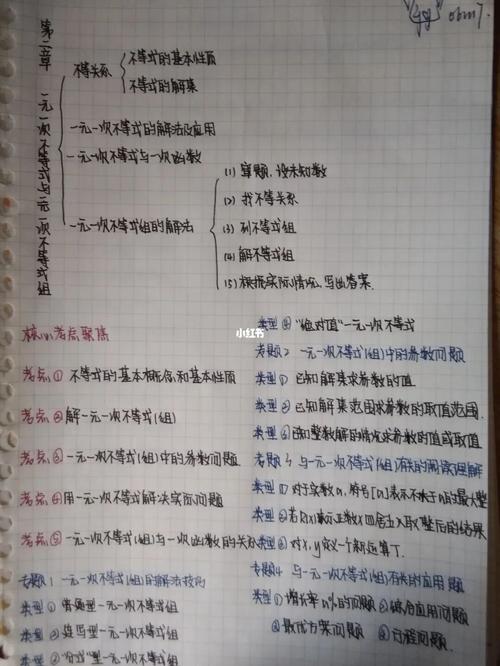 第二章 一元一次不等式与一元一次不等式组
不等关系
不等式的基本性质
不等式的解集
一元一次不等式的解法及应用
一元一次不等式与一次函数
一元一次不等式组的解法
(1) 审题,设未知数
(2) 找不等关系
(3) 列不等式组
(4) 解不等式组
(5) 根据实际情况,写出答案.
小红书
核心考点聚焦
考点① 不等式的基本概念和基本性质
考点② 解一元一次不等式(组)
考点③ 一元一次不等式(组)中的参数问题
考点④ 用一元一次不等式解决实际问题
考点⑤ 一元一次不等式(组)与一次函数的关系
专题1 一元一次不等式(组)的解法技巧
类型① 普通型一元一次不等式组
类型② 连写型一元一次不等式组
类型③ "分式"型一元一次不等式组
类型④ "绝对值"一元一次不等式
专题2 一元一次不等式(组)中的参数问题
类型① 已知解集求参数的值
类型② 已知解集范围求参数的取值范围
类型③ 已知整数解的情况求参数的值或取值
专题3 与一元一次不等式(组)有关的阅读理解
类型① 对于实数n,符号[n]表示不大于n的最大整
类型② 若R(x)表示正数x四舍五入取整后的结果
类型③ 对x,y定义一个新运算T.
专题4 与一元一次不等式(组)有关的应用题
类型① 增长率n%的问题 ② 综合应用问题
③ 最优方案问题 ④ 过程问题.